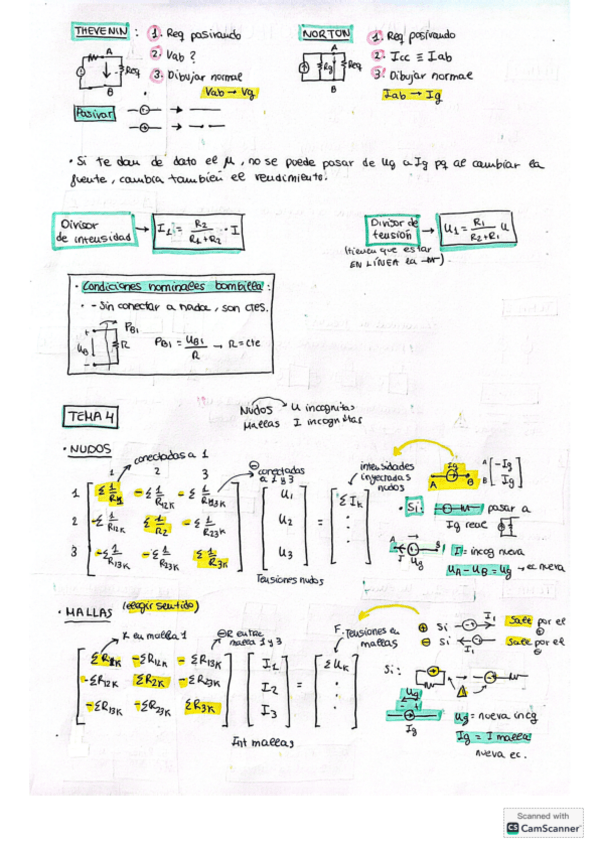 THEVENIN : 1. Req pasivando
2. Vab ?
3. Dibujar normal
Vab → Vg
A
Req
B
NORTON
1. Req pasivando
2. Icc ≡ Iab
3. Dibujar normal
Iab → Ig
A
Rg
Req
B
Pasivar
• Si te dan de dato el μ, no se puede pasar de Ug a Ig pq al cambiar la
fuente, cambia también el rendimiento.
Divisor
de intensidad → I1 = R2 / (R1+R2) · I
Divisor de
tensión → U1 = R1 / (R2+R1) U
(tienen que estar
EN LÍNEA la )
• Condiciones nominales bombilla:
• - Sin conectar a nada, son ctes.
PB1
+
UB
R
-
PB1 = UB1 / R → R = cte
TEMA 4
Nudos U incognitas
Mallas I incognitas
• NUDOS
conectadas a 1
⊖ conectadas
a 1 y 3
intensidades
inyectadas
nudos
1 2 3
1 Σ 1/R1K - Σ 1/R12K - Σ 1/R13K U1 = Σ IK
2 - Σ 1/R12K Σ 1/R2 - Σ 1/R23K U2
3 - Σ 1/R13K - Σ 1/R23K Σ 1/R3K U3
Tensiones nudos
Ig
A B
A -Ig
B Ig
• Si: pasar a
Ig real
A B
I Ug
I = incog nueva
UA - UB = Ug → ec nueva
• MALLAS (elegir sentido)
R en malla 1
⊖ R entre
malla 1 y 3
F. Tensiones en
mallas
ΣR1K -ΣR12K -ΣR13K I1 = ΣUK
-ΣR12K ΣR2K -ΣR23K I2
-ΣR13K -ΣR23K ΣR3K I3
Int mallas
⊕ Si I1 Sale por el
⊕
⊖ Si I1 Sale por el
⊖
Si:
Ug
- +
Ig
Ug = nueva incg
Ig = I malla
nueva ec.
Scanned with
CS CamScanner